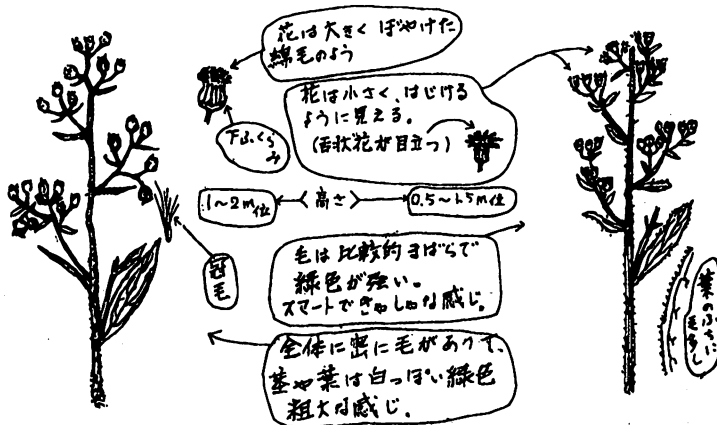 花は大きく ぼやけた
綿毛のよう
花は小さく、はじける
ように見える。
(舌状花が目立つ)
下ふくらみ
1~2m位
高さ
0.5~1.5m位
冠毛
毛は比較的まばらで
緑色が強い。
スマートできゃしゃな感じ。
全体に密に毛があって、
茎や葉は白っぽい緑色
粗大な感じ。
葉のふちに
毛多し